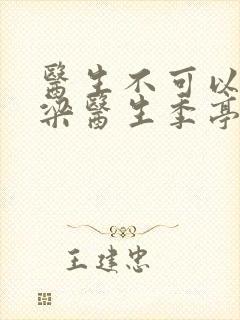 醫生不可以
梁醫生季亭
王建忠